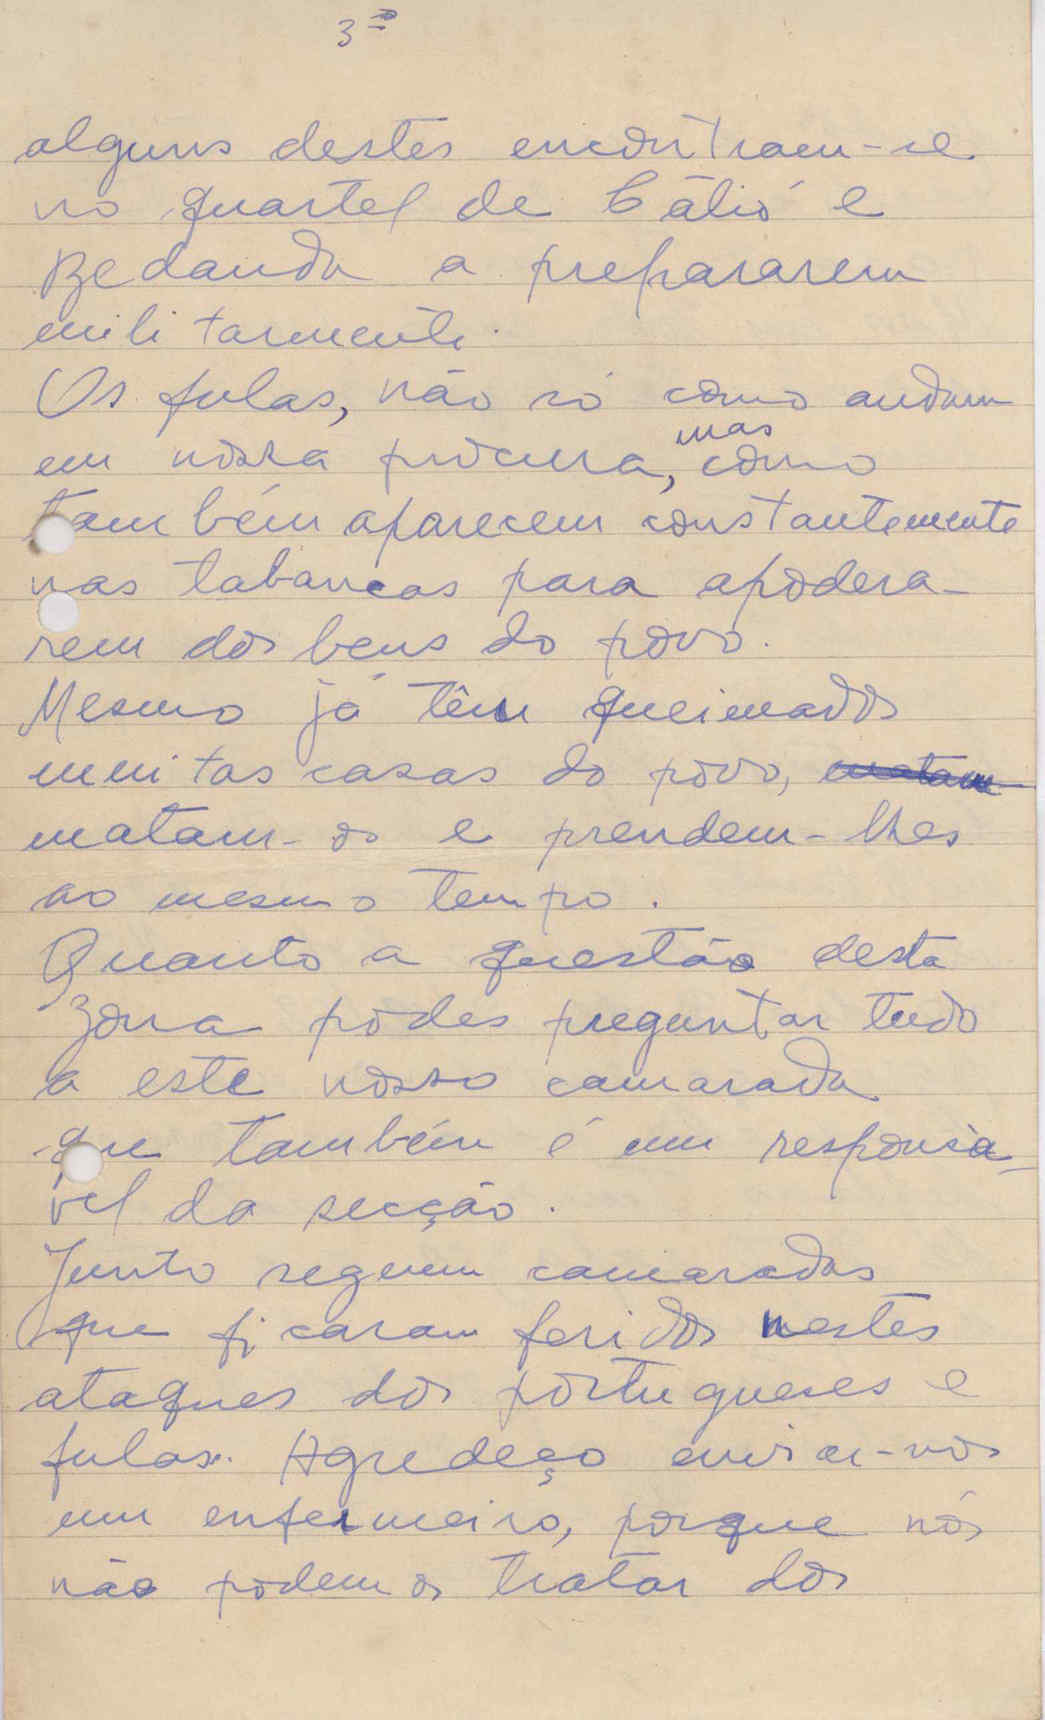 3º
alguns destes encontram-se
no quartel de Câtió e
Bedanda a prepararem
militarmente.
Os fulas, não só como andam
em nossa procura, mas como
também aparecem constantemente
nas tabancas para apodera-
rem dos bens do povo.
Mesmo já têm queimados
muitas casas do povo, matam
matam-os e prendem-lhes
ao mesmo tempo.
Quanto a questão desta
zona podes preguntar tudo
a este nosso camarada
que também é um responsá-
vel da secção.
Junto seguem camaradas
que ficaram feridos nestes
ataques dos portugueses e
fulas. Agredeço enviar-nos
um enfermeiro, porque nós
não podemos tratar dos